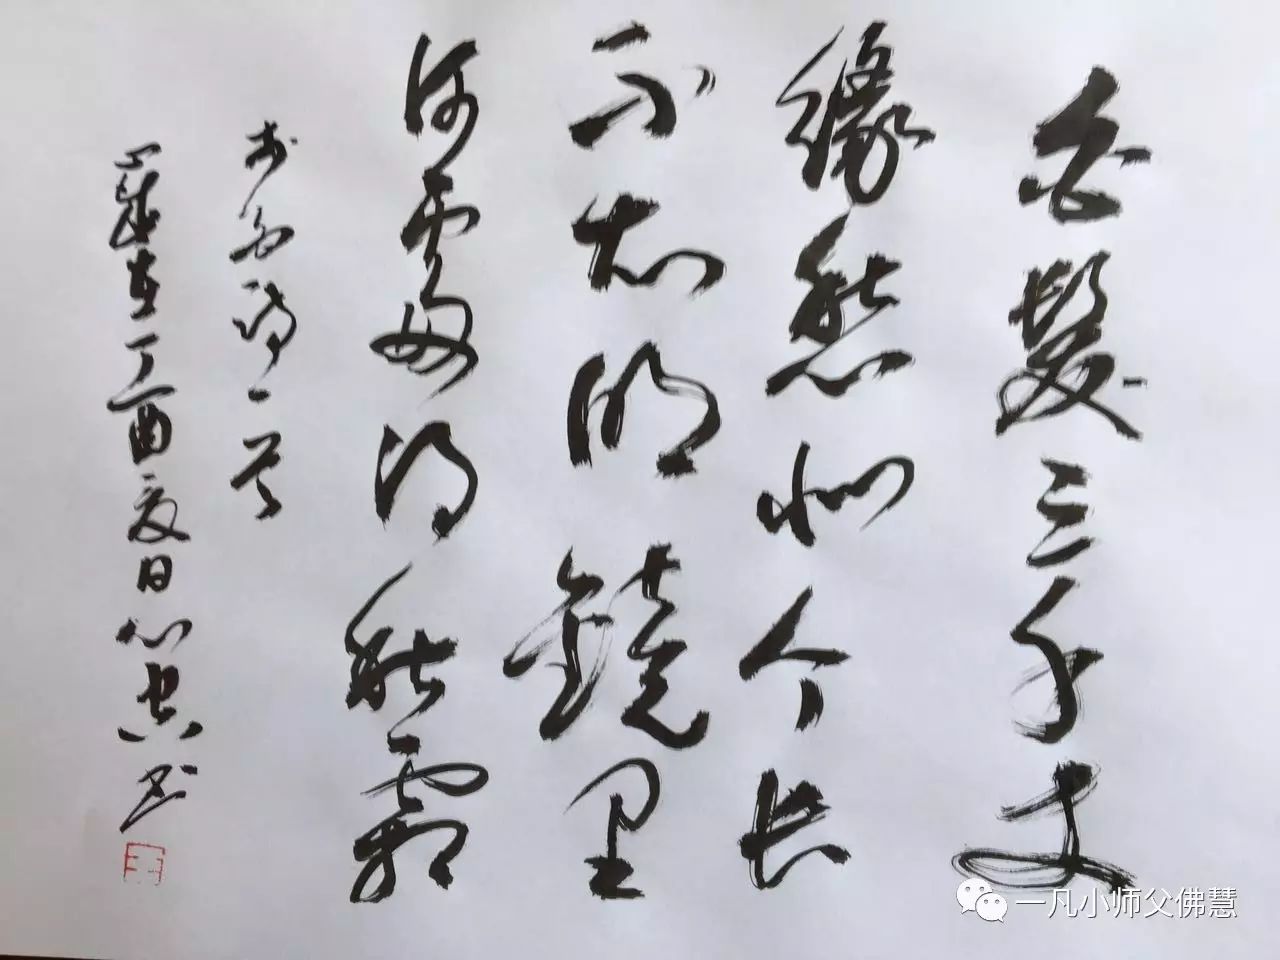 白髮三千丈
緣愁似个长
不知明鏡里
何處得秋霜
李白诗一首
歲在丁酉夏日心空书
一凡小师父佛慧